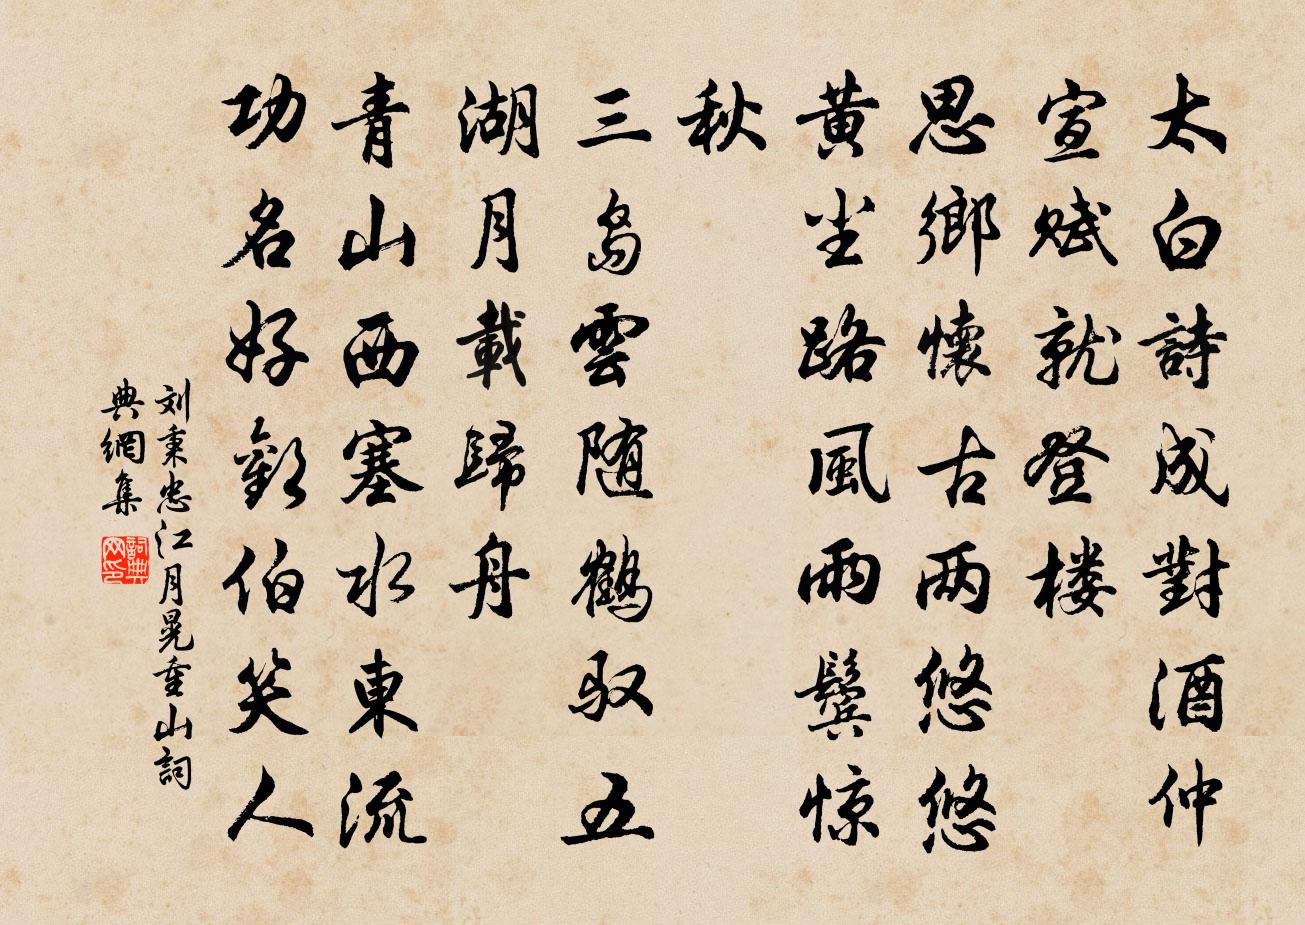 太白詩成對酒仲
宣賦就登楼
思鄉懷古两悠悠
黄尘路風雨鬓惊
秋
三島雲随鶴驭五
湖月載歸舟
青山西塞水東流
功名好歡伯笑人
刘秉忠江月晃重山詞
典網集
詞典
网印